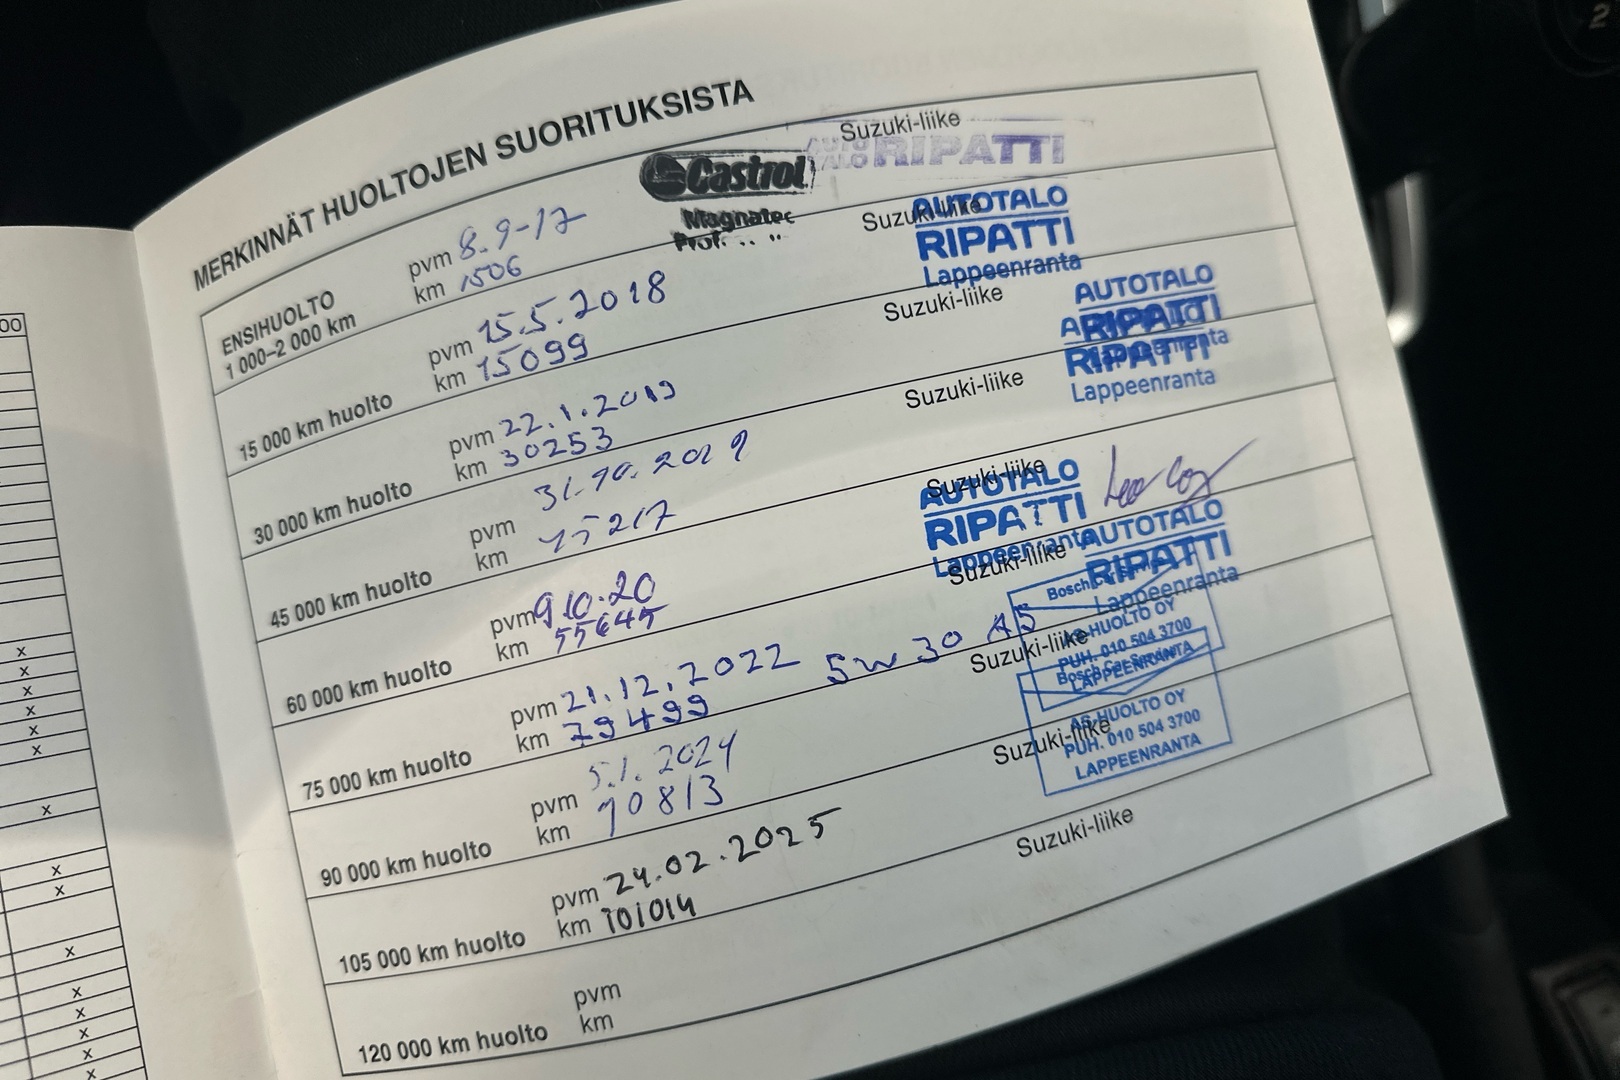 MERKINNÄT HUOLTOJEN SUORITUKSISTA
ENSIHUOLTO
1 000–2 000 km
pvm 8.9-17
km 1506
Castrol
Magnatec
Prof.
Suzuki-liike
AUTOTALO RIPATTI
15 000 km huolto
pvm 15.5.2018
km 15099
Suzuki-liike
AUTOTALO
RIPATTI
Lappeenranta
30 000 km huolto
pvm 22.1.2019
km 30253
Suzuki-liike
AUTOTALO
RIPATTI
Lappeenranta
45 000 km huolto
pvm 31.10.2019
km
Suzuki-liike
AUTOTALO
RIPATTI
Lappeenranta
60 000 km huolto
pvm 9.10.20
km 55645
Suzuki-liike
AUTOTALO
RIPATTI
Lappeenranta
75 000 km huolto
pvm 21.12.2022
km 79499
5W30 A5
Suzuki-liike
AUTOTALO
RIPATTI
Lappeenranta
90 000 km huolto
pvm 5.1.2024
km 90813
Suzuki-liike
Bosch Car Service
AS-HUOLTO OY
PUH. 010 504 3700
LAPPEENRANTA
105 000 km huolto
pvm 24.02.2025
km 101014
Suzuki-liike
Bosch Car Service
AS-HUOLTO OY
PUH. 010 504 3700
LAPPEENRANTA
120 000 km huolto
pvm
km
Suzuki-liike
00
x
x
x
x
x
x
x
x
x
x
x
x
x
x
x
2